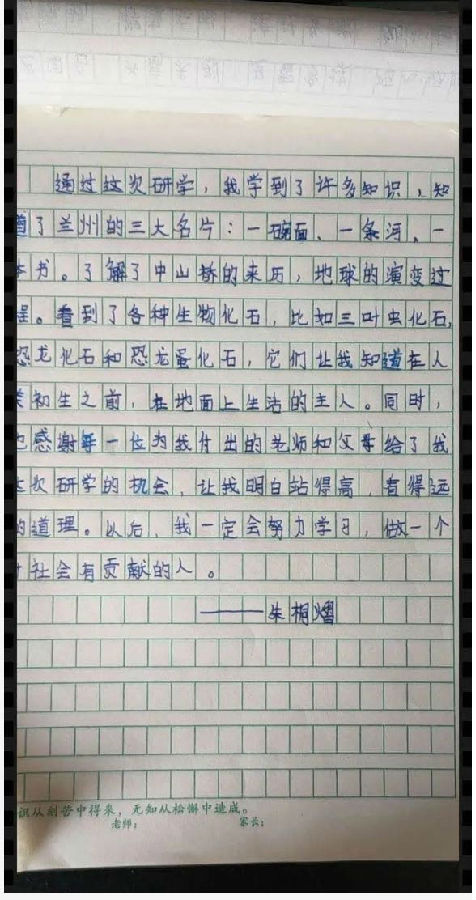 通过这次研学，我学到了许多知识，知
道了兰州的三大名片：一碗面、一条河、一
本书。了解了中山桥的来历，地球的演变过
程。看到了各种生物化石，比如三叶虫化石，
恐龙化石和恐龙蛋化石，它们让我知道在人
类初生之前，在地面上生活的主人。同时，
也感谢每一位为我付出的老师和父母给了我
这次研学的机会，让我明白站得高，看得远
的道理。以后，我一定会努力学习，做一个
对社会有贡献的人。
——朱桐熠
识从刻苦中得来，无知从松懈中造成。
老师： 家长：